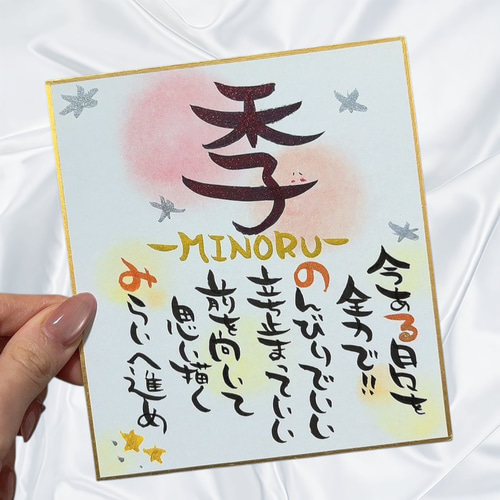 季
-MINORU-
今ある日々を
全力で!!
のんびりでいい
立ち止まっていい
前を向いて
思い描く
みらいへ進め